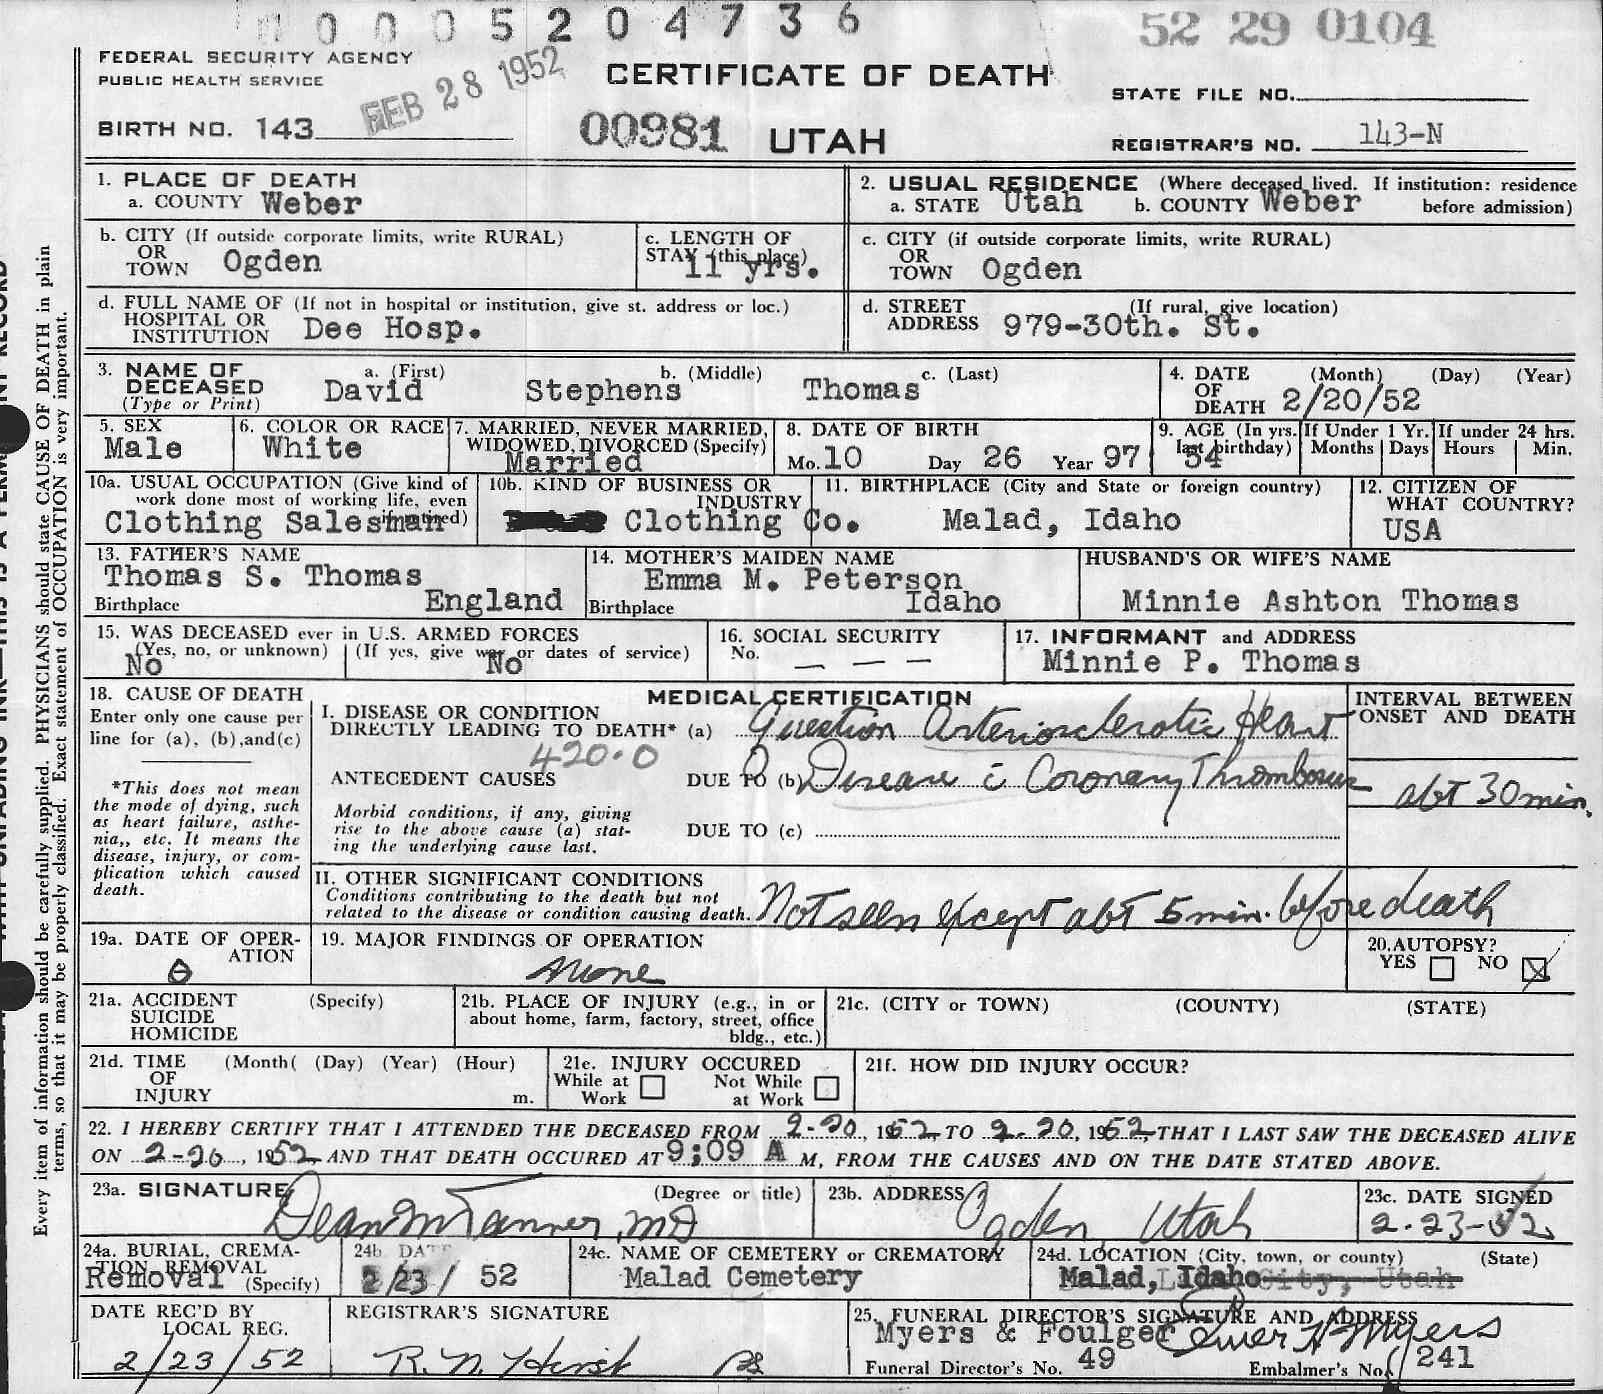 0 0 0 5 2 0 4 7 3 6
52 29 0104
FEDERAL SECURITY AGENCY
PUBLIC HEALTH SERVICE
FEB 28 1952
CERTIFICATE OF DEATH
STATE FILE NO.
BIRTH NO. 143
00981 UTAH
REGISTRAR'S NO. 143-N
1. PLACE OF DEATH
a. COUNTY Weber
2. USUAL RESIDENCE (Where deceased lived. If institution: residence
a. STATE Utah b. COUNTY Weber before admission)
b. CITY (If outside corporate limits, write RURAL)
OR
TOWN Ogden
c. LENGTH OF
STAY (this place)
11 yrs.
c. CITY (if outside corporate limits, write RURAL)
OR
TOWN Ogden
d. FULL NAME OF (If not in hospital or institution, give st. address or loc.)
HOSPITAL OR
INSTITUTION Dee Hosp.
d. STREET (If rural, give location)
ADDRESS 979-30th. St.
3. NAME OF
DECEASED
(Type or Print)
a. (First) b. (Middle) c. (Last)
David Stephens Thomas
4. DATE (Month) (Day) (Year)
OF
DEATH 2/20/52
5. SEX
Male
6. COLOR OR RACE
White
7. MARRIED, NEVER MARRIED,
WIDOWED, DIVORCED (Specify)
Married
8. DATE OF BIRTH
Mo. 10 Day 26 Year 97
9. AGE (In yrs.
last birthday)
54
If Under 1 Yr.
Months Days
If under 24 hrs.
Hours Min.
10a. USUAL OCCUPATION (Give kind of
work done most of working life, even
if retired)
Clothing Salesman
10b. KIND OF BUSINESS OR
INDUSTRY
Clothing Co.
11. BIRTHPLACE (City and State or foreign country)
Malad, Idaho
12. CITIZEN OF
WHAT COUNTRY?
USA
13. FATHER'S NAME
Thomas S. Thomas
Birthplace England
14. MOTHER'S MAIDEN NAME
Emma M. Peterson
Birthplace Idaho
HUSBAND'S OR WIFE'S NAME
Minnie Ashton Thomas
15. WAS DECEASED ever in U.S. ARMED FORCES
(Yes, no, or unknown) (If yes, give war or dates of service)
No No
16. SOCIAL SECURITY
No. — — —
17. INFORMANT and ADDRESS
Minnie P. Thomas
18. CAUSE OF DEATH
Enter only one cause per
line for (a), (b), and (c)
*This does not mean
the mode of dying, such
as heart failure, asthe-
nia,, etc. It means the
disease, injury, or com-
plication which caused
death.
MEDICAL CERTIFICATION
I. DISEASE OR CONDITION
DIRECTLY LEADING TO DEATH* (a) Question Arteriosclerotic Heart
420.0
ANTECEDENT CAUSES DUE TO (b) Disease c̄ Coronary Thrombosis
Morbid conditions, if any, giving
rise to the above cause (a) stat-
ing the underlying cause last.
DUE TO (c)
INTERVAL BETWEEN
ONSET AND DEATH
abt 30 min.
II. OTHER SIGNIFICANT CONDITIONS
Conditions contributing to the death but not
related to the disease or condition causing death. Not seen except abt 5 min. before death
19a. DATE OF OPER-
ATION
0
19. MAJOR FINDINGS OF OPERATION
None
20. AUTOPSY?
YES NO
21a. ACCIDENT (Specify)
SUICIDE
HOMICIDE
21b. PLACE OF INJURY (e.g., in or
about home, farm, factory, street, office
bldg., etc.)
21c. (CITY or TOWN) (COUNTY) (STATE)
21d. TIME (Month( (Day) (Year) (Hour)
OF
INJURY m.
21e. INJURY OCCURED
While at Work
Not While at Work
21f. HOW DID INJURY OCCUR?
22. I HEREBY CERTIFY THAT I ATTENDED THE DECEASED FROM 2-20, 1952 TO 2-20, 1952, THAT I LAST SAW THE DECEASED ALIVE
ON 2-20, 1952 AND THAT DEATH OCCURED AT 9:09 A M, FROM THE CAUSES AND ON THE DATE STATED ABOVE.
23a. SIGNATURE (Degree or title)
Dean M Tanner, MD
23b. ADDRESS
Ogden, Utah
23c. DATE SIGNED
2-23-52
24a. BURIAL, CREMA-
TION REMOVAL
(Specify)
Removal
24b. DATE
2/23/52
24c. NAME OF CEMETERY or CREMATORY
Malad Cemetery
24d. LOCATION (City, town, or county) (State)
Malad, Idaho City, Utah
DATE REC'D BY
LOCAL REG.
2/23/52
REGISTRAR'S SIGNATURE
R. N. Hirst
25. FUNERAL DIRECTOR'S SIGNATURE AND ADDRESS
Myers & Foulger Elmer H Myers
Funeral Director's No. 49 Embalmer's No. 241
Every item of information should be carefully supplied. PHYSICIANS should state CAUSE OF DEATH in plain
terms, so that it may be properly classified. Exact statement of OCCUPATION is very important.